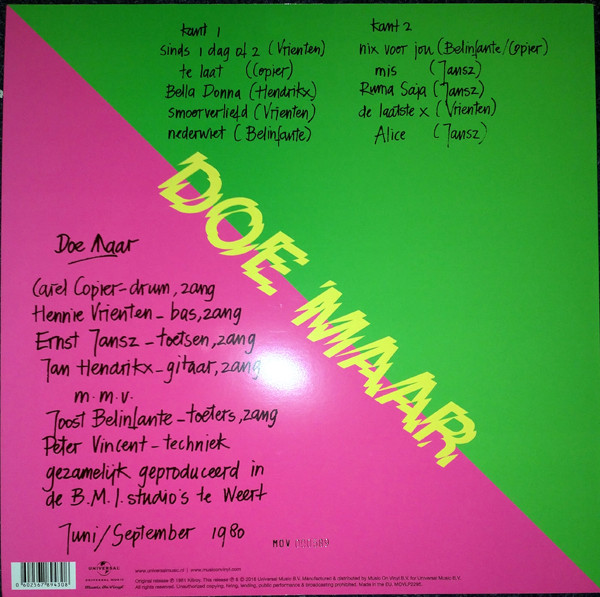 kant 1
sinds 1 dag of 2 (Vrienten)
te laat (Copier)
Bella Donna (Hendrikx)
smoorverliefd (Vrienten)
nederwiet (Belinfante)
kant 2
nix voor jou (Belinfante/Copier)
mis (Jansz)
Ruma Saja (Jansz)
de laatste x (Vrienten)
Alice (Jansz)
DOE MAAR
Doe Maar
Carel Copier-drum, zang
Hennie Vrienten - bas, zang
Ernst Jansz - toetsen, zang
Jan Hendrikx - gitaar, zang
m.m.v.
Joost Belinfante - toeters, zang
Peter Vincent - techniek
gezamelijk geproduceerd in
de B.M.I. studio's te Weert
Juni/September 1980
MOV
0 602567 894308
UNIVERSAL
UNIVERSAL MUSIC
Music On Vinyl
www.universalmusic.nl | www.musiconvinyl.com
Original release ℗ 1981 Killroy. This release ℗ & © 2018 Universal Music B.V. Manufactured & distributed by Music On Vinyl B.V. for Universal Music B.V.
All rights reserved. Unauthorized copying, hiring, lending, public performance & broadcasting prohibited. Made in the EU.